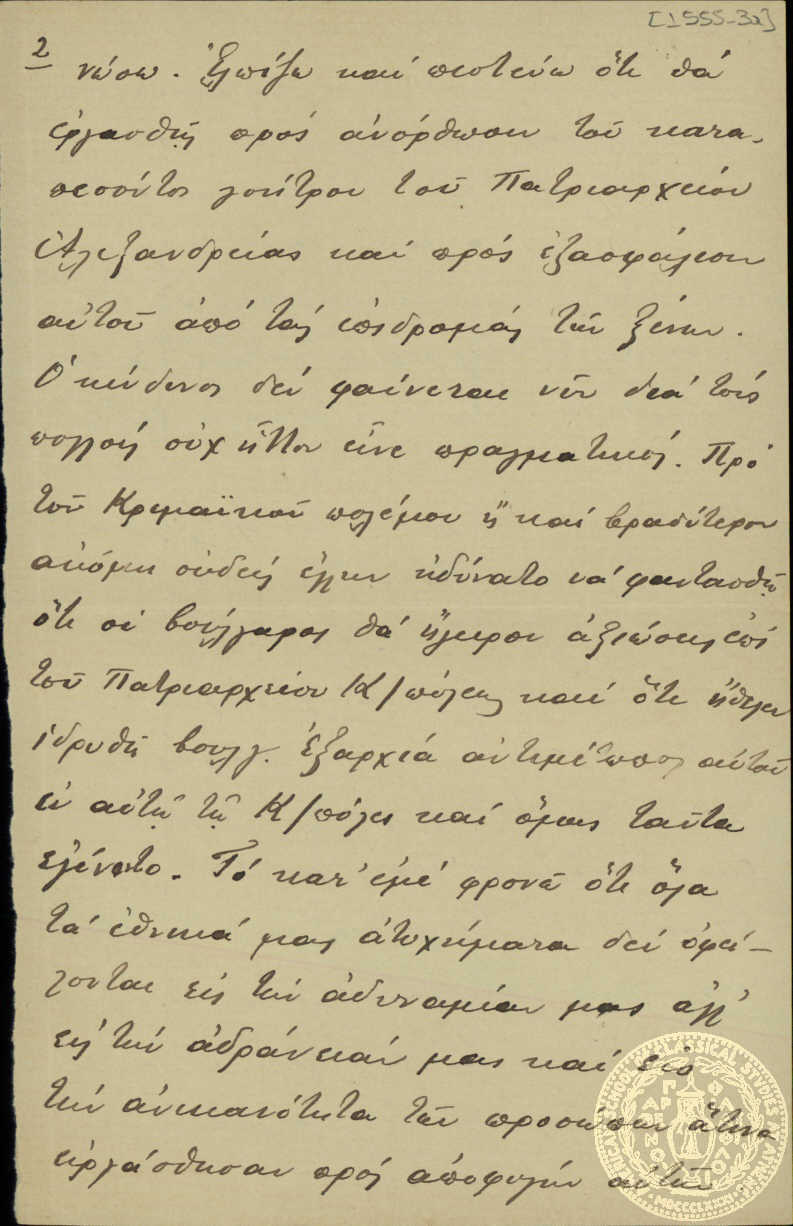 [1555-3α]
2
νώσω. Ἐλπίζω καί πιστεύω ὅτι θά
ἐργασθῇ πρός ἀνόρθωσιν τοῦ κατα-
πεσόντος γοήτρου τοῦ Πατριαρχείου
Ἀλεξανδρείας καί πρός ἐξασφάλισιν
αὐτοῦ ἀπό τάς ἐπιδρομάς τῶν ξένων.
Ὁ κίνδυνος δέν φαίνεται νῦν διά τούς
πολλούς οὐχ ἧττον εἶνε πραγματικός. Πρό
τοῦ Κριμαϊκοῦ πολέμου ἤ καί βραδύτερον
ἀκόμη οὐδείς ἕλλην ἠδύνατο νά φαντασθῇ
ὅτι οἱ βούλγαροι θά ἤγειρον ἀξιώσεις ἐπί
τοῦ Πατριαρχείου Κ/πόλεως καί ὅτι ἤθελεν
ἱδρυθῆ βουλγ. ἐξαρχία ἀντιμέτωπος αὐτοῦ
ἐν αὐτῇ τῇ Κ/πόλει καί ὅμως ταῦτα
ἐγένετο. Τό κατ' ἐμέ φρονῶ ὅτι ὅλα
τά ἐθνικά μας ἀτυχήματα δέν ὀφεί-
λονται εἰς τήν ἀδυναμίαν μας ἀλλ'
εἰς τήν ἀδράνειάν μας καί εἰς
τήν ἀνικανότητα τῶν προσώπων ἅτινα
εἰργάσθησαν πρός ἀποφυγήν αὐτῶν
AMERICAN SCHOOL OF CLASSICAL STUDIES IN ATHENS
MDCCCLXXXI